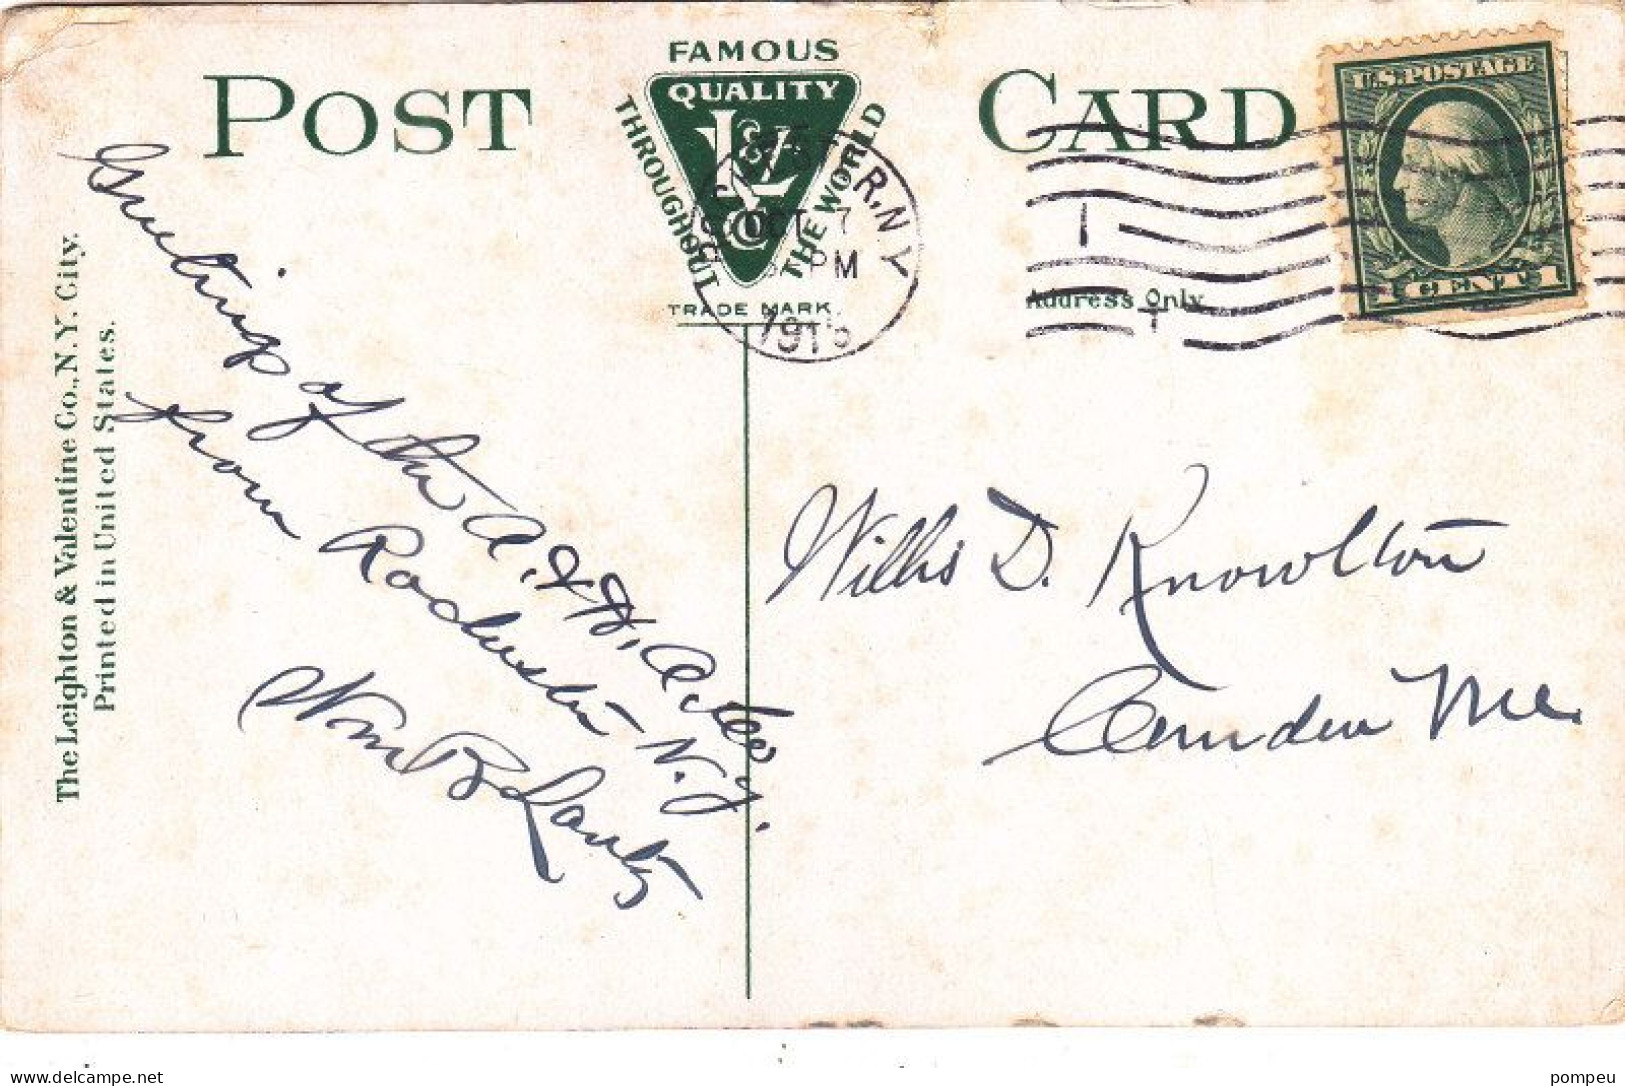 POST CARD
FAMOUS
QUALITY
L&V
Co
THROUGHOUT THE WORLD
TRADE MARK.
R, N.Y
OCT 7
PM
191
U.S. POSTAGE
1 CENT 1
Address Only.
The Leighton & Valentine Co., N.Y. City.
Printed in United States.
Greetings of the A.
from Rochester N.Y.
Wm B
Willis D. Knowlton
Camden Me.
www.delcampe.net
pompeu